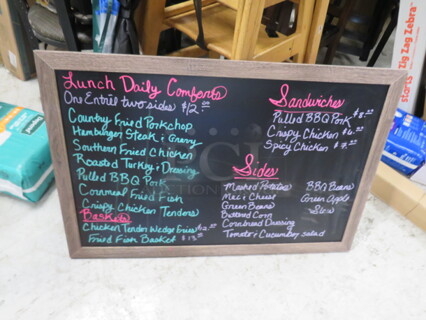 Lunch Daily Comforts
One Entrée two sides $12.00
Country Fried Porkchop
Hamburger Steak & Gravy
Southern Fried Chicken
Roasted Turkey & Dressing
Pulled BBQ Pork
Cornmeal Fried Fish
Crispy Chicken Tenders
Baskets
Chicken Tender Wedge Fries $12.00
Fried Fish Basket $13.00
Sandwiches
Pulled BBQ Pork $8.50
Crispy Chicken $6.50
Spicy Chicken $7.50
Sides
Mashed Potatoes
Mac & Cheese
Green Beans
Buttered Corn
Cornbread Dressing
Tomato & Cucumber salad
BBQ Beans
Green Apple
Slaw
Zig Zag Zebra